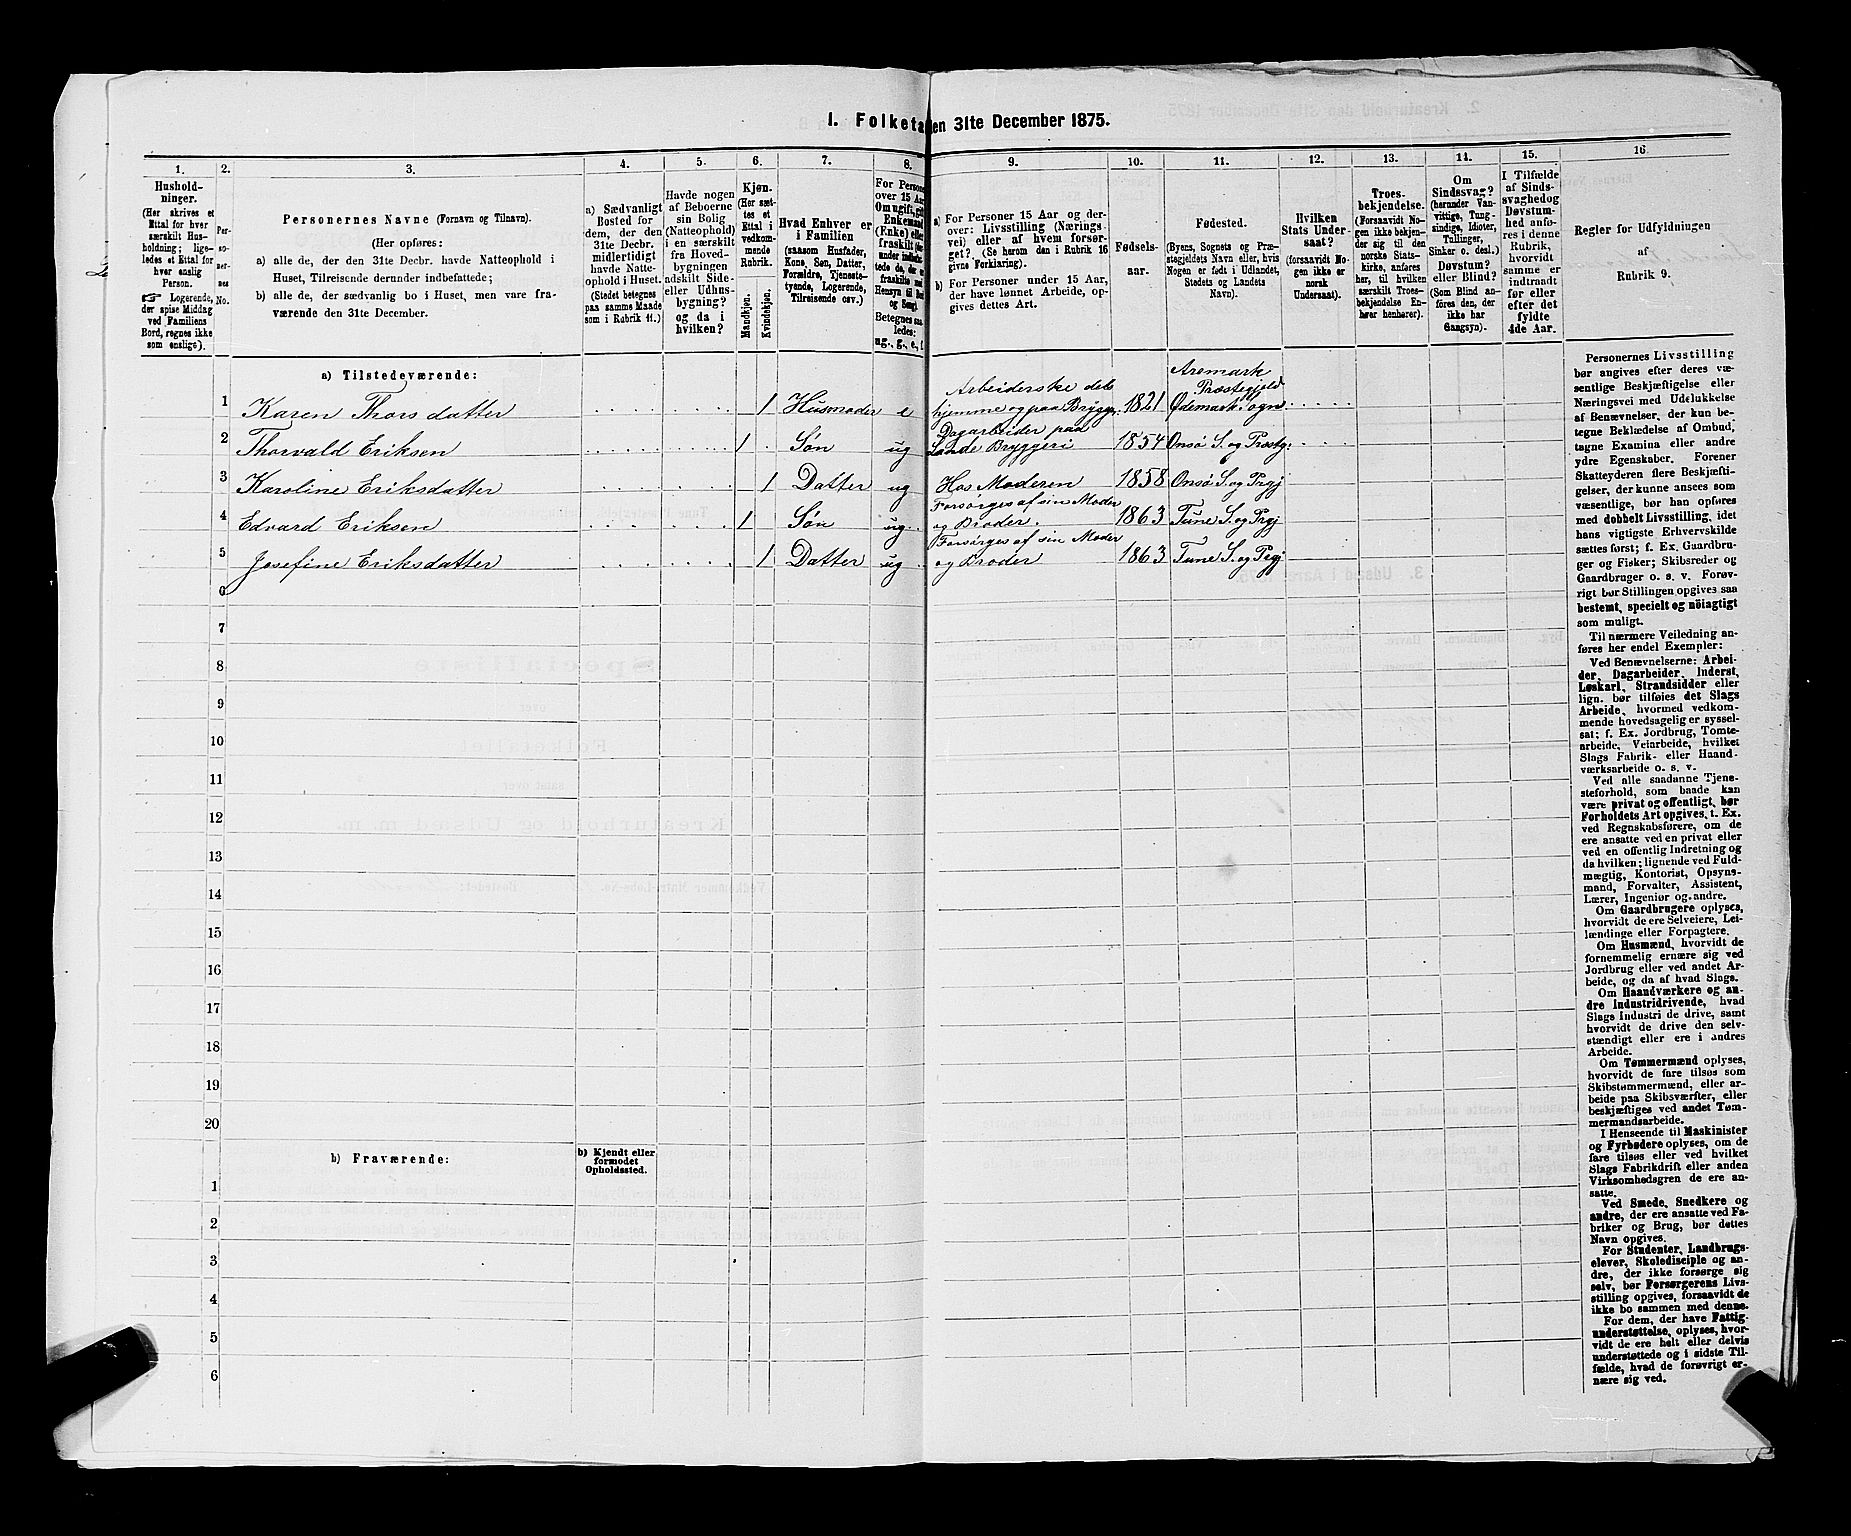 I. Folketal den 31te December 1875.
1. 2. 3. 4. 5. 6. 7. 8. 9. 10. 11. 12. 13. 14. 15. 16.
Hushold-
ninger.
(Her skrives et
Ettal for hver
særskilt Hus-
holdning; lige-
ledes et Ettal for
hver enslig
Person.
Logerende,
der spise Middag
ved Familiens
Bord, regnes ikke
som enslige).
Per-
so-
ner-
nes
No.
Personernes Navne (Fornavn og Tilnavn).
(Her opføres:
a) alle de, der den 31te Decbr. havde Natteophold i
Huset, Tilreisende derunder indbefattede;
b) alle de, der sædvanlig bo i Huset, men vare fra-
værende den 31te December.
a) Sædvanligt
Bosted for
dem, der den
31te Decbr.
midlertidigt
havde Natte-
ophold i Huset.
(Stedet betegnes
paa samme Maade
som i Rubrik 11.)
Havde nogen
af Beboerne
sin Bolig
(Natteophold)
i en særskilt
fra Hoved-
bygningen
adskilt Side-
eller Udhus-
bygning?
og da i
hvilken?
Kjøn.
(Her sæt-
tes et
Ettal i
vedkom-
mende
Rubrik.
Mandkjøn.
Kvindekjøn.
Hvad Enhver er
i Familien
(saasom Husfader,
Kone, Søn, Datter,
Forældre, Tjeneste-
tyende, Logerende,
Tilreisende osv.)
For Person
over 15 Aar
Om ugift, gift
Enkemand
(Enke) eller
fraskilt
Betegnes saa
ledes:
ug., g., e., f.
a) For Personer 15 Aar og der-
over: Livsstilling (Nærings-
vei) eller af hvem forsør-
get? (Se herom den i Rubrik 16
givne Forklaring).
b) For Personer under 15 Aar,
der have lønnet Arbeide, op-
gives dettes Art.
Fødsels-
aar.
Fødested.
(Byens, Sognets og Præ-
stegjeldets Navn eller, hvis
Nogen er født i Udlandet,
Stedets og Landets
Navn).
Hvilken
Stats Under-
saat?
(forsaavidt No-
gen ikke er
norsk
Undersaat).
Troes-
bekjendelse.
(Forsaavidt No-
gen ikke bekjen-
der sig til den
norske Stats-
kirke, anføres
her, til hvilken
særskilt Troes-
bekjendelse En-
hver henhører).
Om
Sindssvag?
(herunder Van-
vittige, Tung-
sindige, Idioter,
Tullinger,
Sinker o. desl.)
Døvstum?
eller Blind?
(Som Blind an-
føres den, der
ikke har
Gangsyn).
I Tilfælde
af Sinds-
svaghed og
Døvstum-
hed anfø-
res i denne
Rubrik,
hvorvidt
samme er
indtraadt
før eller
efter det
fyldte
4de Aar.
Regler for Udfyldningen
af
Rubrik 9.
a) Tilstedeværende:
1 Karen Thorsdatter 1 Husmoder e Arbeiderske dels
hjemme og paa Bryggeri. 1821 Aremark
Præstegjeld
Ødemark Sogn
2 Thorvald Eriksen 1 Søn ug Dagarbeider paa
Sande Bryggeri 1854 Onsø S. og Præstg:
3 Karoline Eriksdatter 1 Datter ug Hos Moderen 1858 Onsø S. og Prgj
4 Edvard Eriksen 1 Søn ug Forsørges af sin Moder
og Broder. 1863 Tune S. og Prgj
5 Josefine Eriksdatter 1 Datter ug Forsørges af sin Moder
og Broder 1863 Tune S. og Prgj
6
7
8
9
10
11
12
13
14
15
16
17
18
19
20
b) Fraværende:
b) Kjendt eller
formodet
Opholdssted.
1
2
3
4
5
6
Personernes Livsstilling
bør angives efter deres væ-
sentlige Beskjæftigelse eller
Næringsvei med Udelukkelse
af Benævnelser, der kun be-
tegne Beklædelse af Ombud,
tagne Examina eller andre
ydre Egenskaber. Forener
Skatteyderen flere Beskjæfti-
gelser, der kunne ansees som
væsentlige, bør han opføres
med dobbelt Livsstilling, idet
hans vigtigste Erhvervskilde
sættes først; f. Ex. Gaardbru-
ger og Fisker; Skibsreder og
Gaardbruger o. s. v. Forøv-
rigt bør Stillingen opgives saa
bestemt, specielt og nöiagtigt
som muligt.
Til nærmere Veiledning an-
føres her endel Exempler:
Ved Benævnelserne: Arbei-
der, Dagarbeider, Inderst,
Løskarl, Strandsidder eller
lign. bør tilføies det Slags
Arbeide, hvormed vedkom-
mende hovedsagelig er syssel-
sat; f. Ex. Jordbrug, Tomte-
arbeide, Veiarbeide, hvilket
Slags Fabrik- eller Haand-
værksarbeide o. s. v.
Ved alle saadanne Tjene-
steforhold, som baade kan
være privat og offentligt, bør
Forholdets Art opgives, t. Ex.
ved Regnskabsførere, om de
ere ansatte ved en privat eller
ved en offentlig Indretning og
da hvilken; lignende ved Fuld-
mægtig, Kontorist, Opsyns-
mand, Forvalter, Assistent,
Lærer, Ingeniør og andre.
Om Gaardbrugere oplyses,
hvorvidt de ere Selveiere, Lei-
lændinge eller Forpagtere.
Om Husmænd, hvorvidt de
fornemmelig ernære sig ved
Jordbrug eller ved andet Ar-
beide, og da af hvad Slags.
Om Haandværkere og an-
dre Industridrivende, hvad
Slags Industri de drive, samt
hvorvidt de drive den selv-
stændigt eller ere i andres
Arbeide.
Om Tømmermænd oplyses,
hvorvidt de fare tilsøs som
Skibstømmermænd, eller ar-
beide paa Skibsværfter, eller
beskjæftiges ved andet Tøm-
mermandsarbeide.
I Henseende til Maskinister
og Fyrbødere oplyses, om de
fare tilsøs eller ved hvilket
Slags Fabrikdrift eller anden
Virksomhedsgren de ere an-
satte.
Ved Smede, Snedkere og
andre, der ere ansatte ved Fa-
briker og Brug, bør dettes
Navn opgives.
For Studenter, Landbrugs-
elever, Skoledisciple og an-
dre, der ikke forsørge sig
selv, bør Forsørgerens Livs-
stilling opgives, forsaavidt de
ikke bo sammen med denne.
For dem, der have Fattig-
understøttelse, oplyses, hvor-
vidt de ere helt eller delvis
understøttede og i sidste Til-
fælde, hvad de forøvrigt er-
nære sig ved.